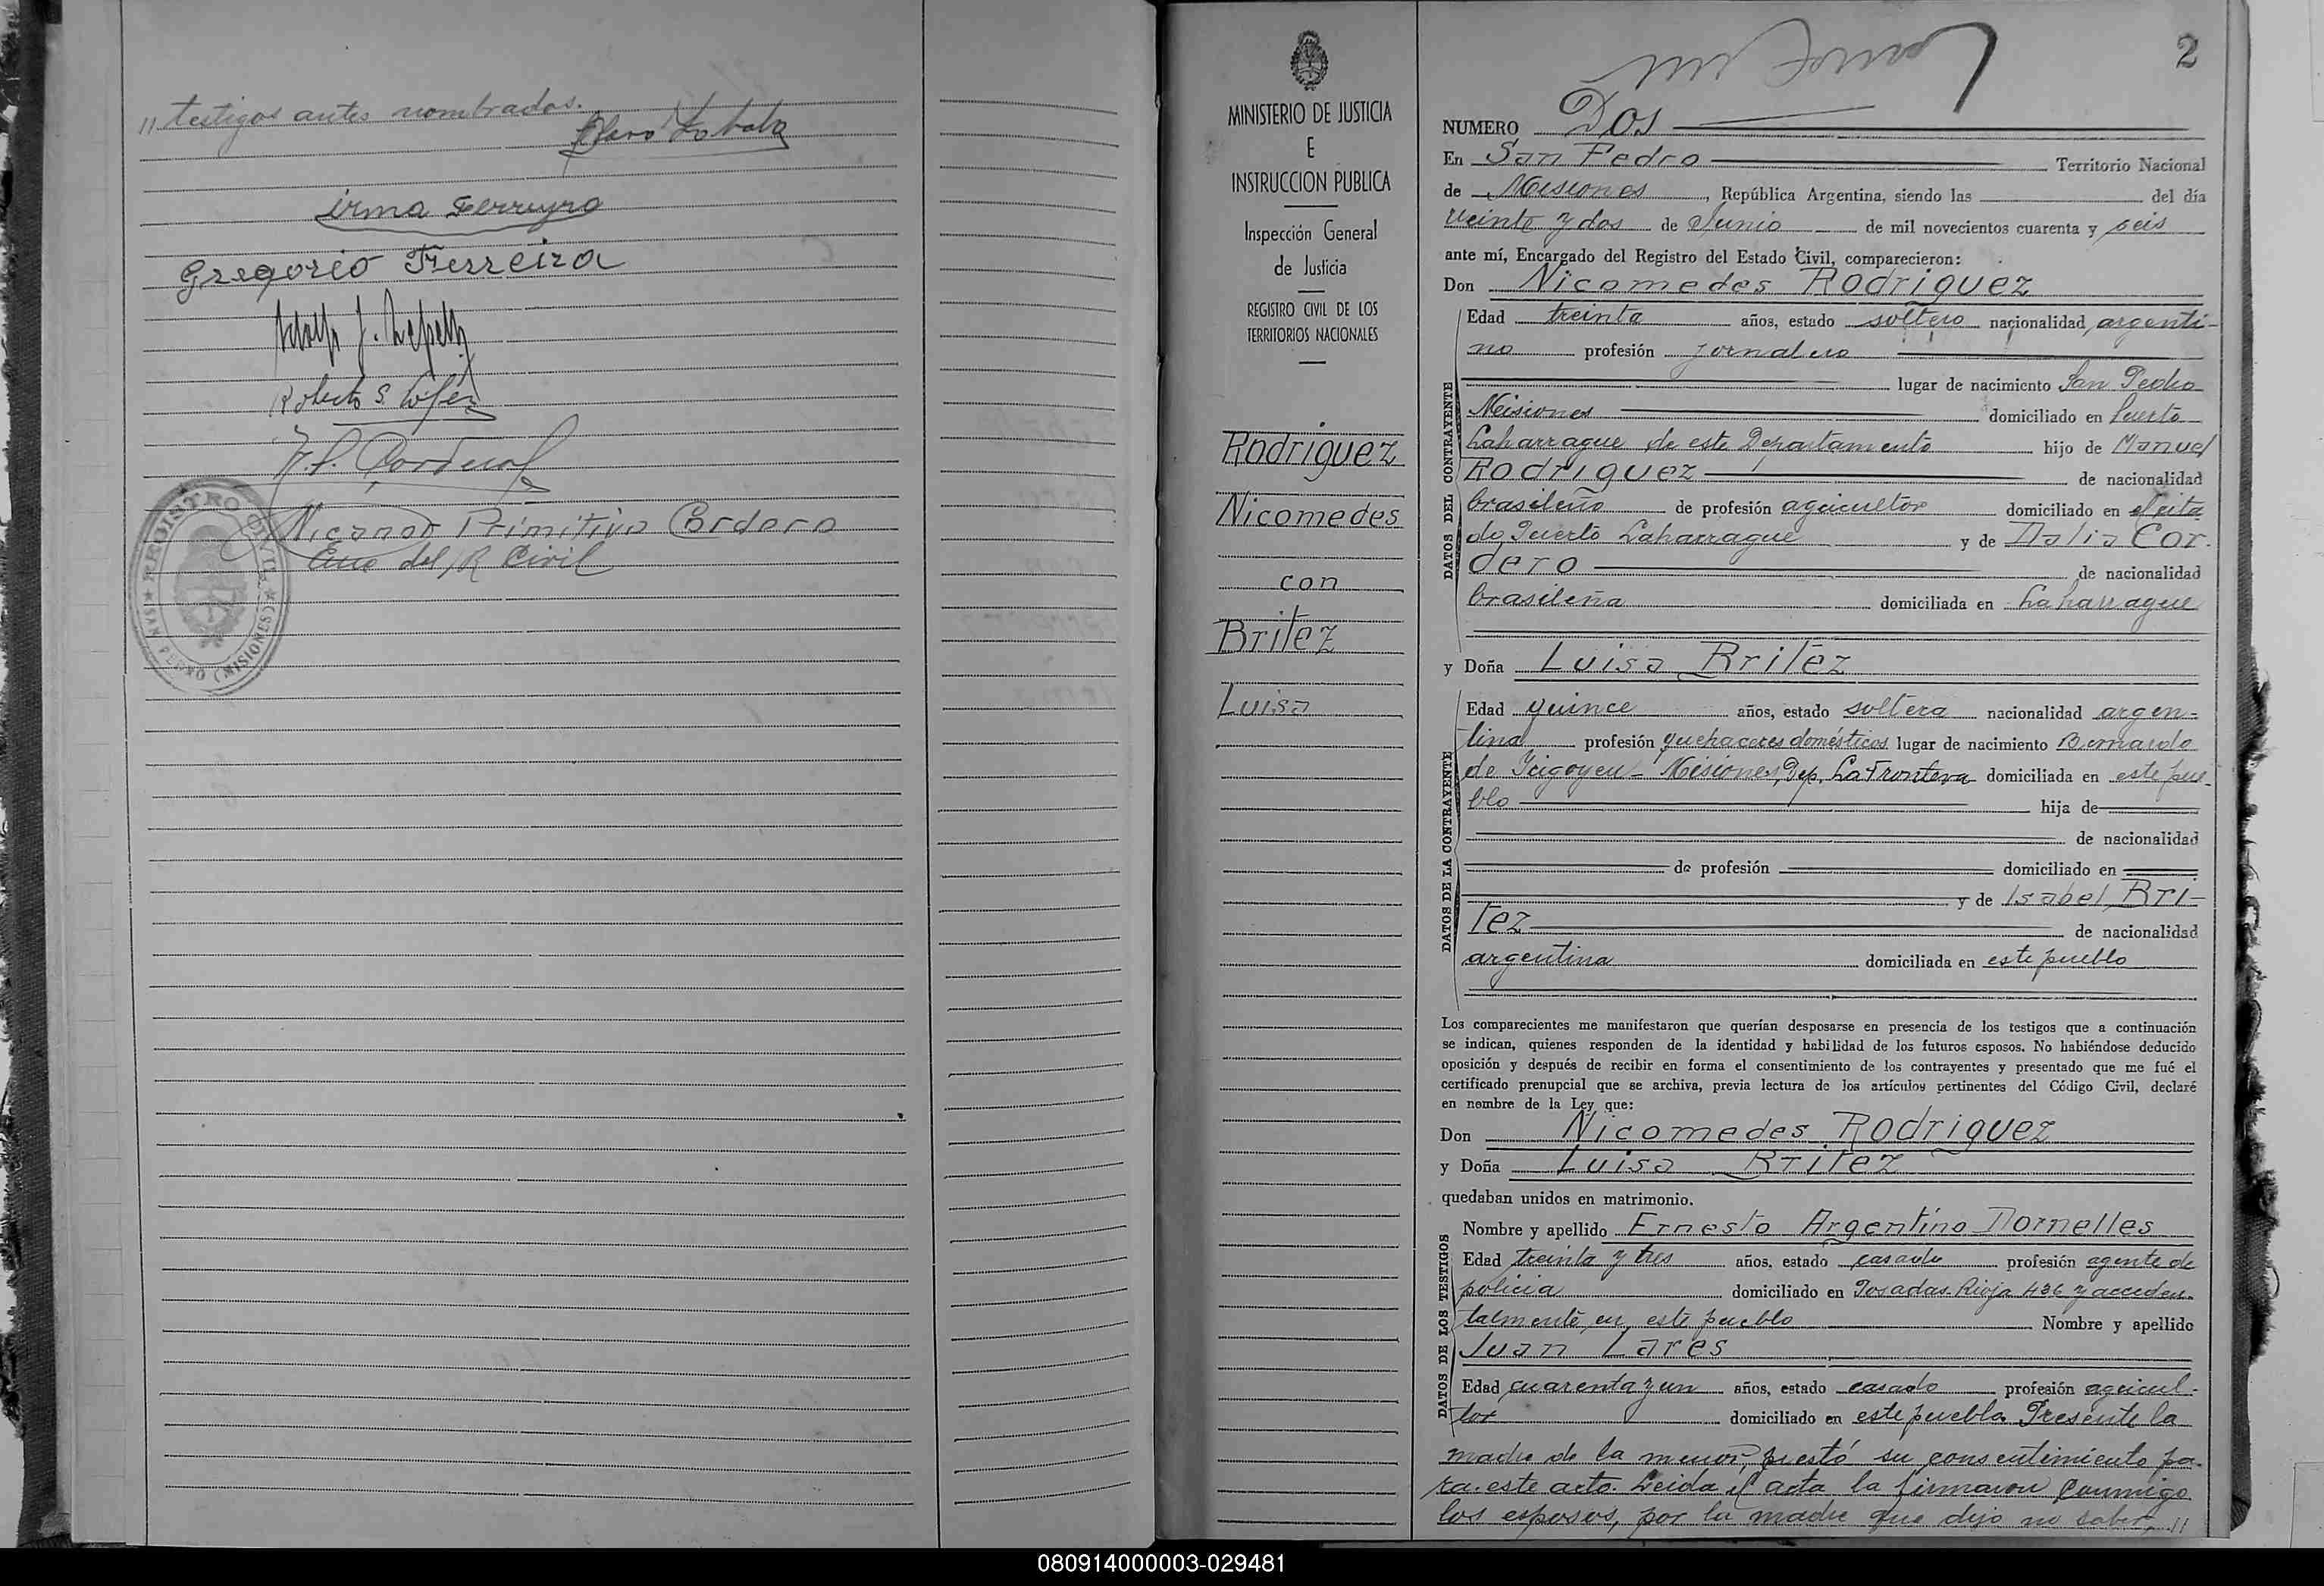 // testigos antes nombrados.
Irma Ferreyra
Gregorio Ferreira
Roberto S. López
N. P. Cordero
Nicanor Primitivo Cordero
del R. Civil
REGISTRO CIVIL
SAN PEDRO (MISIONES)
MINISTERIO DE JUSTICIA
E
INSTRUCCION PUBLICA
Inspección General
de Justicia
REGISTRO CIVIL DE LOS
TERRITORIOS NACIONALES
Rodriguez
Nicomedes
con
Britez
Luisa
2
NUMERO Dos
En San Pedro Territorio Nacional
de Misiones, República Argentina, siendo las del día
veinte y dos de Junio de mil novecientos cuarenta y seis
ante mí, Encargado del Registro del Estado Civil, comparecieron:
Don Nicomedes Rodriguez
DATOS DEL CONTRAYENTE
Edad treinta años, estado soltero nacionalidad argenti-
no profesión jornalero
lugar de nacimiento San Pedro
Misiones domiciliado en Puerto
Laharrague de este Departamento hijo de Manuel
Rodriguez de nacionalidad
brasileño de profesión agricultor domiciliado en el cita
do Puerto Laharrague y de Dalia Cor-
dero de nacionalidad
brasileña domiciliada en Laharrague
y Doña Luisa Britez
DATOS DE LA CONTRAYENTE
Edad quince años, estado soltera nacionalidad argen-
tina profesión quehaceres domésticos lugar de nacimiento Bernardo
de Irigoyen - Misiones, Dep. La Frontera domiciliada en este pue-
blo hija de
de nacionalidad
de profesión domiciliado en
y de Isabel Bri-
tez de nacionalidad
argentina domiciliada en este pueblo
Los comparecientes me manifestaron que querían desposarse en presencia de los testigos que a continuación
se indican, quienes responden de la identidad y habilidad de los futuros esposos. No habiéndose deducido
oposición y después de recibir en forma el consentimiento de los contrayentes y presentado que me fué el
certificado prenupcial que se archiva, previa lectura de los artículos pertinentes del Código Civil, declaré
en nombre de la Ley que:
Don Nicomedes Rodriguez
y Doña Luisa Britez
quedaban unidos en matrimonio.
DATOS DE LOS TESTIGOS
Nombre y apellido Ernesto Argentino Dornelles
Edad treinta y tres años, estado casado profesión agente de
policia domiciliado en Posadas. Rioja 436 y acciden-
talmente en este pueblo Nombre y apellido
Juan Lares
Edad cuarenta y un años, estado casado profesión agricul-
tor domiciliado en este pueblo. Presente la
madre de la menor, prestó su consentimiento pa-
ra este acto. Leida el acta la firmaron conmigo
los esposos, por la madre que dijo no saber, //
080914000003-029481